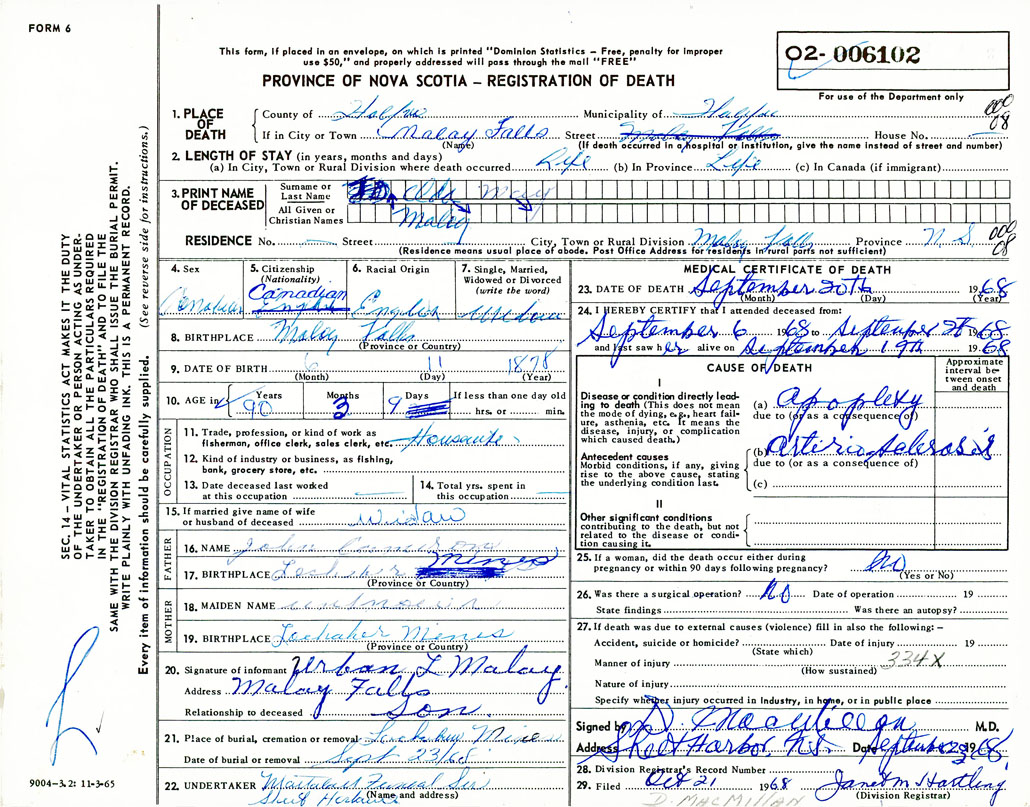 FORM 6
This form, if placed in an envelope, on which is printed "Dominion Statistics – Free, penalty for improper
use $50," and properly addressed will pass through the mail "FREE"
PROVINCE OF NOVA SCOTIA – REGISTRATION OF DEATH
02- 006102
For use of the Department only
SEC. 14 – VITAL STATISTICS ACT MAKES IT THE DUTY
OF THE UNDERTAKER OR PERSON ACTING AS UNDER-
TAKER TO OBTAIN ALL THE PARTICULARS REQUIRED
IN THE "REGISTRATION OF DEATH" AND TO FILE THE
SAME WITH THE DIVISION REGISTRAR WHO SHALL ISSUE THE BURIAL PERMIT.
WRITE PLAINLY WITH UNFADING INK. THIS IS A PERMANENT RECORD.
Every item of information should be carefully supplied. (See reverse side for instructions.)
1. PLACE OF DEATH
County of Halifax Municipality of Halifax 000 08
If in City or Town Malay Falls Street House No.
(Name) (If death occurred in a hospital or institution, give the name instead of street and number)
2. LENGTH OF STAY (in years, months and days)
(a) In City, Town or Rural Division where death occurred Life (b) In Province Life (c) In Canada (if immigrant)
3. PRINT NAME OF DECEASED
Surname or Last Name Ada May
All Given or Christian Names Malay
RESIDENCE No. Street City, Town or Rural Division Malay Falls Province N S 000 08
(Residence means usual place of abode. Post Office Address for residents in rural parts not sufficient)
4. Sex
5. Citizenship (Nationality) Canadian
6. Racial Origin English
7. Single, Married, Widowed or Divorced (write the word) Widow
8. BIRTHPLACE Malay Falls
(Province or Country)
9. DATE OF BIRTH 6 11 1878
(Month) (Day) (Year)
10. AGE in Years 90 Months 3 Days 9 If less than one day old hrs. or min.
OCCUPATION
11. Trade, profession, or kind of work as
fisherman, office clerk, sales clerk, etc. Housewife
12. Kind of industry or business, as fishing,
bank, grocery store, etc.
13. Date deceased last worked at this occupation
14. Total yrs. spent in this occupation
15. If married give name of wife
or husband of deceased widow
FATHER
16. NAME John Cameron
17. BIRTHPLACE Lochaber Mines
(Province or Country)
MOTHER
18. MAIDEN NAME unknown
19. BIRTHPLACE Lochaber Mines
(Province or Country)
20. Signature of informant Urban L Malay
Address Malay Falls
Relationship to deceased Son
21. Place of burial, cremation or removal Lochaber Mines
Date of burial or removal Sept 23/68
22. UNDERTAKER Funeral Sir
(Name and address) Sheet Harbour
9004–3.2: 11-3-65
MEDICAL CERTIFICATE OF DEATH
23. DATE OF DEATH September 20th 1968
(Month) (Day) (Year)
24. I HEREBY CERTIFY that I attended deceased from:
September 6 1968 to September 20 1968
and last saw her alive on September 19th 1968
CAUSE OF DEATH
Approximate interval between onset and death
I
Disease or condition directly lead-
ing to death (This does not mean
the mode of dying, e.g., heart fail-
ure, asthenia, etc. It means the
disease, injury, or complication
which caused death.)
(a) Apoplexy
due to (or as a consequence of)
Antecedent causes
Morbid conditions, if any, giving
rise to the above cause, stating
the underlying condition last.
(b) Arterio Sclerosis
due to (or as a consequence of)
(c)
II
Other significant conditions
contributing to the death, but not
related to the disease or condi-
tion causing it.
25. If a woman, did the death occur either during
pregnancy or within 90 days following pregnancy? No
(Yes or No)
26. Was there a surgical operation? No Date of operation 19
State findings Was there an autopsy?
27. If death was due to external causes (violence) fill in also the following: –
Accident, suicide or homicide? Date of injury 19
(State which)
Manner of injury 334X
(How sustained)
Nature of injury
Specify whether injury occurred in Industry, in home, or in public place
Signed by D. MacMillan M.D.
Address Sheet Harbor, N.S. Date September 23 1968
28. Division Registrar's Record Number
29. Filed Oct 21 1968 Janet M Hartling
(Division Registrar)
D. MACMILLAN